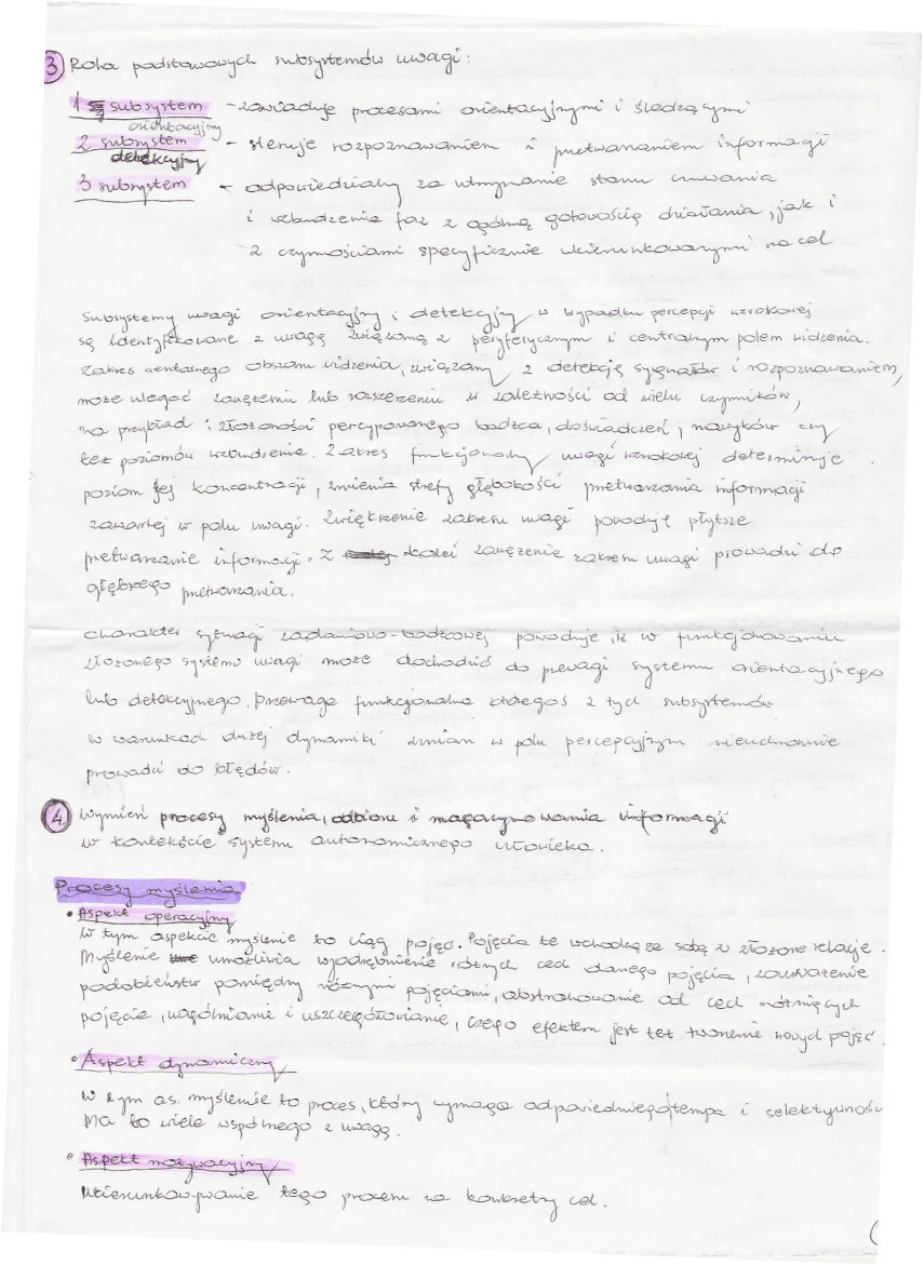 3 Rola podstawowych subsystemów uwagi:
1 subsystem - zawiaduje procesami orientacyjnymi i śledzącymi
orientacyjny
2 subsystem - steruje rozpoznawaniem i przetwarzaniem informacji
detekcyjny
3 subsystem - odpowiedzialny za utrzymanie stanu czuwania
i wzbudzenia faz z ogólną gotowością działania, jak i
z czynnościami specyficznie ukierunkowanymi na cel
Subsystemy uwagi orientacyjny i detekcyjny w wypadku percepcji wzrokowej
są identyfikowane z uwagą związaną z peryferycznym i centralnym polem widzenia.
Zakres centralnego obszaru widzenia, związany z detekcją sygnałów i rozpoznawaniem,
może ulegać zawężeniu lub rozszerzeniu w zależności od wielu czynników,
na przykład i złożoności percypowanego bodźca, doświadczeń, nawyków czy
też poziomów wzbudzenia. Zakres funkcjonalny uwagi wzrokowej determinuje
poziom jej koncentracji, zmienia strefy głębokości przetwarzania informacji
zawartej w polu uwagi. Zwiększenie zakresu uwagi powoduje płytsze
przetwarzanie informacji. Z kolei zawężenie zakresu uwagi prowadzi do
głębszego przetwarzania.
Charakter sytuacji zadaniowo-bodźcowej powoduje, iż w funkcjonowaniu
złożonego systemu uwagi może dochodzić do przewagi systemu orientacyjnego
lub detekcyjnego. Przewaga funkcjonalna któregoś z tych subsystemów
w warunkach dużej dynamiki zmian w polu percepcyjnym nieuchronnie
prowadzi do błędów.
4. Wymień procesy myślenia, odbioru i magazynowania informacji
w kontekście systemu autonomicznego człowieka.
Procesy myślenia
• Aspekt operacyjny
W tym aspekcie myślenie to ciąg pojęć. Pojęcia te wchodzą ze sobą w złożone relacje.
Myślenie umożliwia wyodrębnienie różnych cech danego pojęcia, zauważenie
podobieństw pomiędzy różnymi pojęciami, abstrahowanie od cech różniących
pojęcie, uogólnianie i uszczegółowianie, czego efektem jest też tworzenie nowych pojęć.
• Aspekt dynamiczny
W tym as. myślenie to proces, który wymaga odpowiedniego tempa i selektywności
Ma to wiele wspólnego z uwagą.
• Aspekt motywacyjny
Ukierunkowywanie tego procesu na konkretny cel.